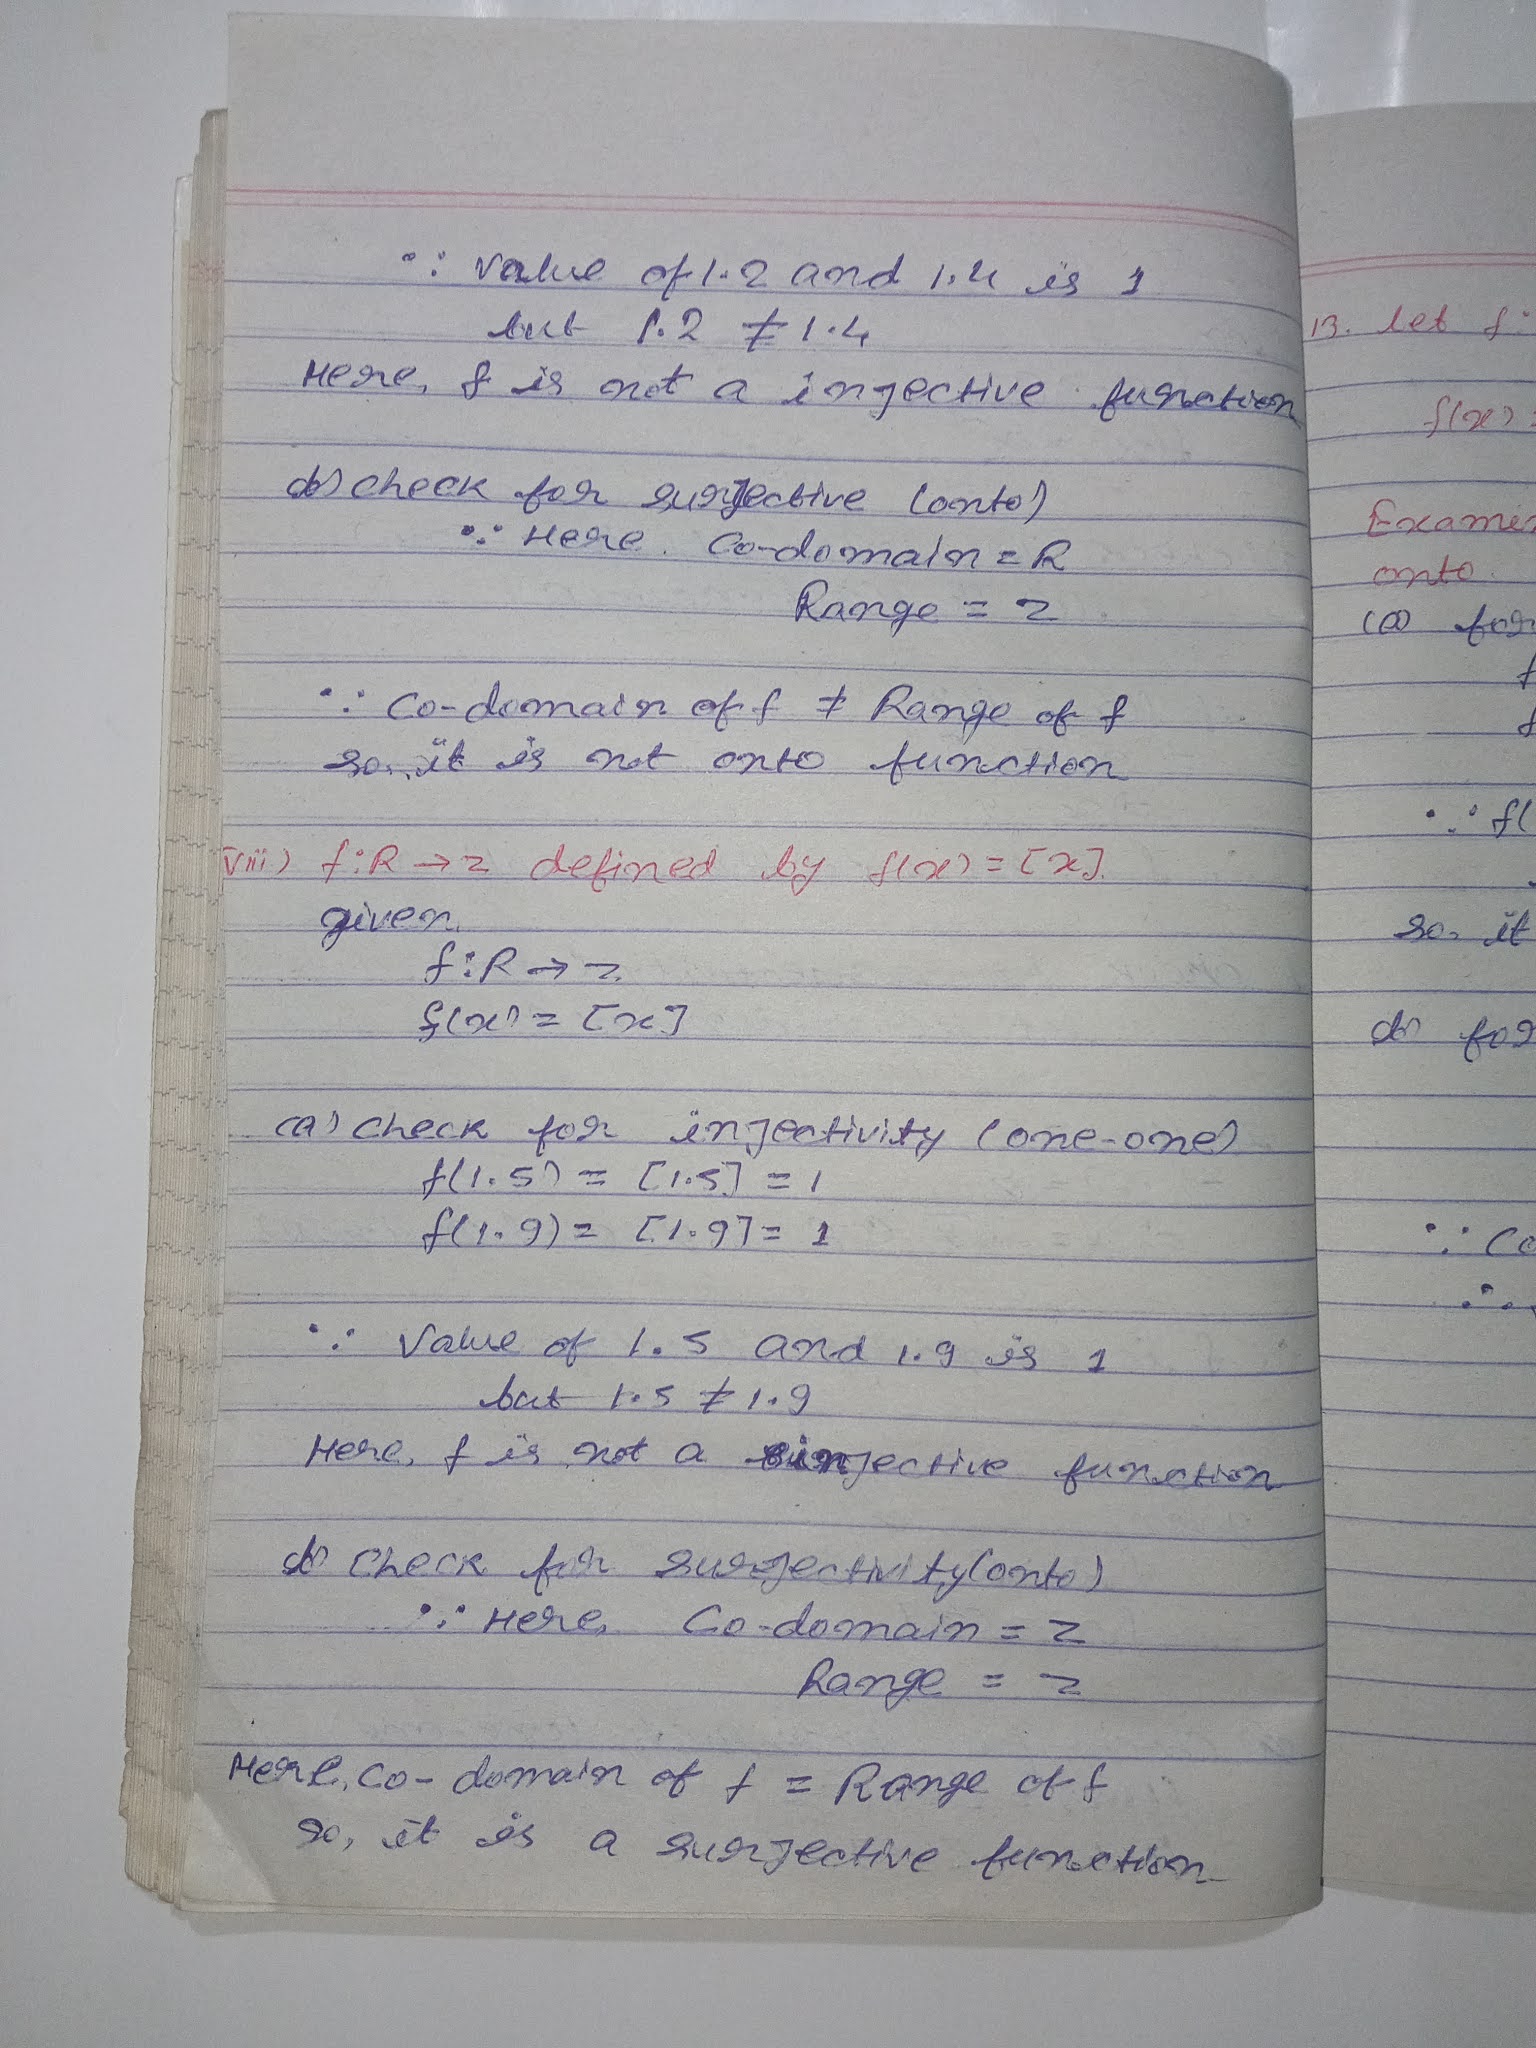 ∵ value of 1.2 and 1.4 is 1
but 1.2 ≠ 1.4
Here, f is not a injective function
(b) check for surjective (onto)
∵ Here. Co-domain = R
Range = Z
∵ Co-domain of f ≠ Range of f
so, it is not onto function
(viii) f:R → Z defined by f(x) = [x].
given
f:R → Z
f(x) = [x]
(a) check for injectivity (one-one)
f(1.5) = [1.5] = 1
f(1.9) = [1.9] = 1
∵ Value of 1.5 and 1.9 is 1
but 1.5 ≠ 1.9
Here, f is not a injective function
(b) check for surjectivity (onto)
∵ Here, Co-domain = Z
Range = Z
Here, co-domain of f = Range of f
so, it is a surjective function
13. let f:
f(x) =
onto.
(a) for
f
f
∵ f(
so, it
(b) for
∵ Co
∴